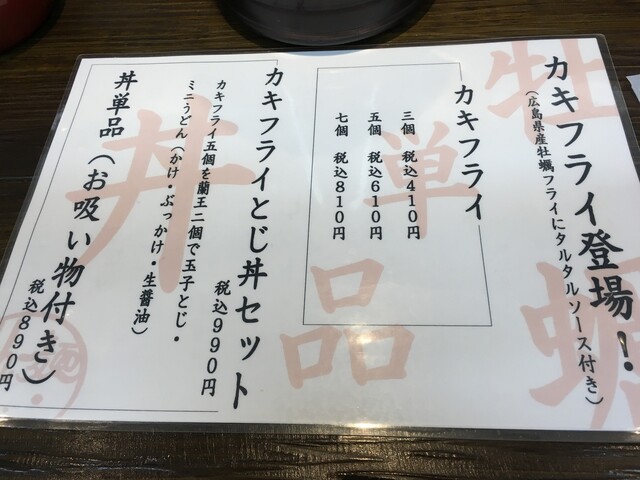 カキフライ登場！
（広島県産牡蠣フライにタルタルソース付き）
カキフライ
三個　税込410円
五個　税込610円
七個　税込810円
カキフライとじ丼セット
税込990円
カキフライ五個を蘭王二個で玉子とじ・
ミニうどん（かけ・ぶっかけ・生醬油）
丼単品（お吸い物付き）
税込890円
牡蠣
単品
丼